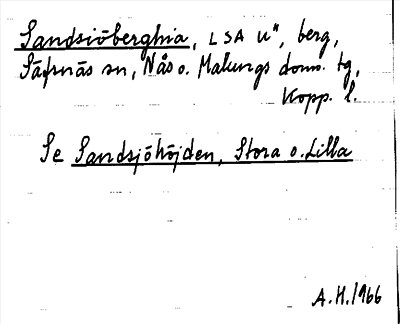 Sandsiöberghia, LSA u", berg,
Säfsnäs sn, Nås o. Malungs doms. tg,
Kopp. l.
Se Sandsjöhöjden, Stora o. Lilla
A.H. 1966